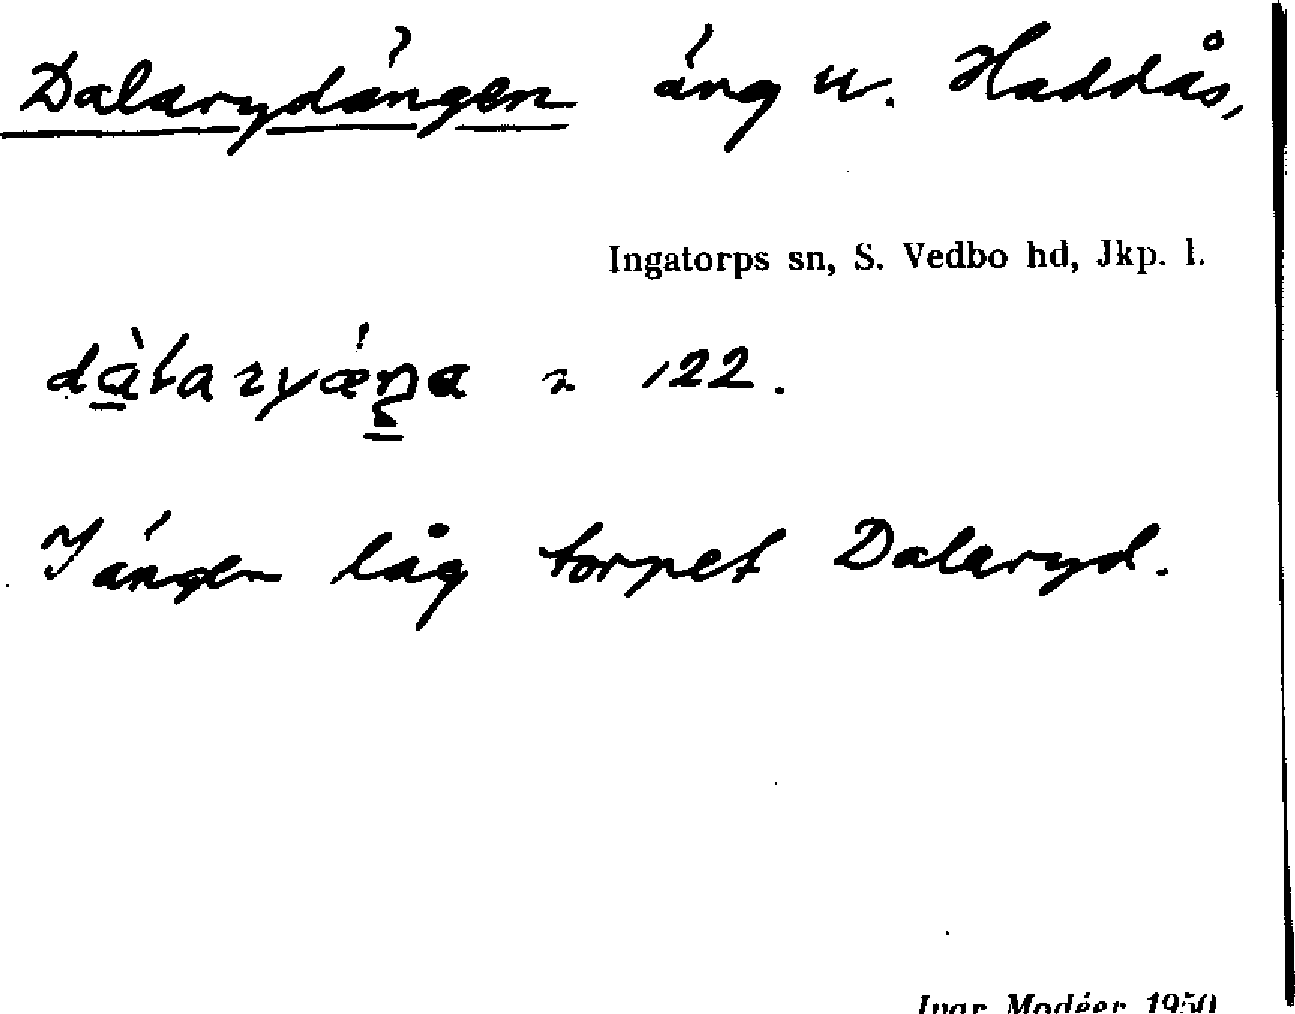 Dalarydängen äng u. Haddås,
Ingatorps sn, S. Vedbo hd, Jkp. l.
122.
I ängen låg torpet Dalaryd.
Ivar Modéer 1950